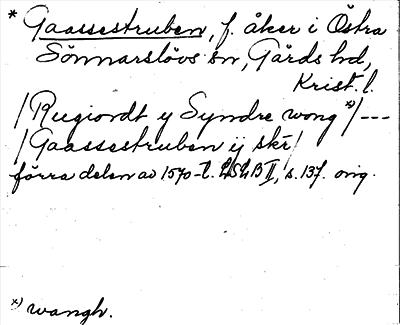 * Gaassestruben, f. åker i Östra
Sönnarslövs sn, Gärds hd,
Krist. l.
/Rugiordt y Syndre wong *)/---
/Gaassestruben ij skr/
förra delen av 1570-t. LSLB II, s. 137. orig.
*) wangh.